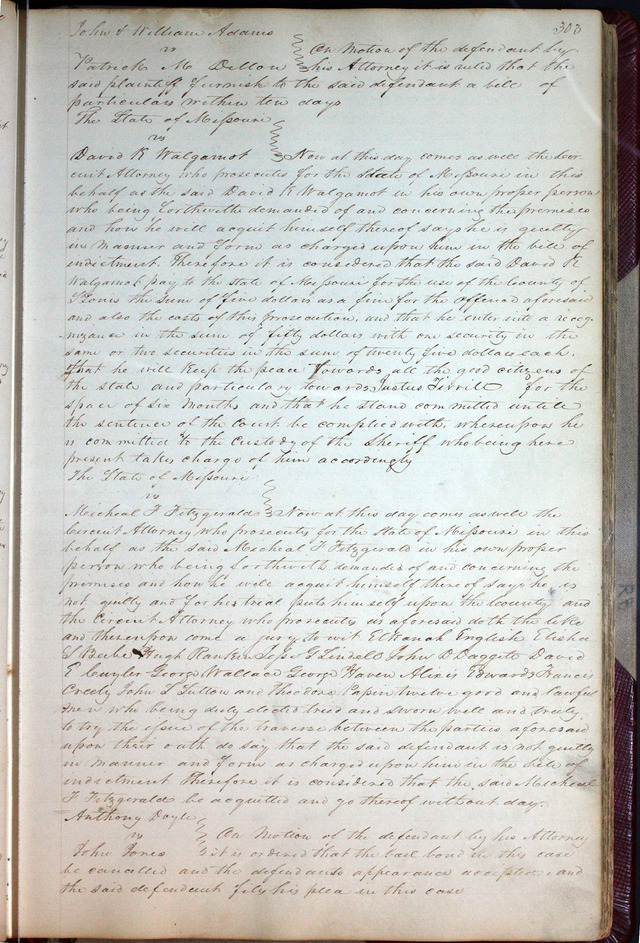 303
John & William Adams
vs
On Motion of the defendant by
Patrick M Dillon his Attorney it is ruled that the
said plaintiff furnish to the said defendant a bill of
particulars within ten days
The State of Missouri
vs
David K Walgamot Now at this day comes as well the Cir-
cuit Attorney who prosecutes for the State of Missouri in this
behalf as the said David K Walgamot in his own proper person
who being forthwith demanded of and concerning the premises
and how he will acquit himself thereof says he is guilty
in manner and form as charged upon him in the bill of
indictment. Therefore it is considered that the said David K
Walgamot pay to the state of Missouri for the use of the County of
St Louis the sum of five dollars as a fine for the offence aforesaid
and also the costs of this prosecution, and that he enter into a recog-
nizance in the sum of fifty dollars with one security in the
same or two securities in the sums of twenty five dollars each,
that he will keep the peace towards all the good citizens of
the state and particulary towards Justus Tirrill for the
space of six months and that he stand committed untill
the sentence of the Court be complied with, whereupon he
is committed to the custody of the Sheriff who being here
present takes charge of him accordingly
The State of Missouri
vs
Micheal F Fitzgerald Now at this day comes as well the
Circuit Attorney who prosecutes for the State of Missouri in this
behalf as the said Micheal F Fitzgerald in his own proper
person who being forthwith demanded of and concerning the
premises and how he will acquit himself thereof says he is
not guilty and for his trial puts himself upon the county and
the Circuit Attorney who prosecutes as aforesaid doth the like
and thereupon come a jury to wit Elkanah English Elisha
S Beebe Hugh Rankin Jesse G Lindell John D Daggett David
E Cuyler George Wallace George Haven Alexis Edwards Francis
Creely John L Sutton and Theodore Papin twelve good and lawful
men who being duly elected tried and sworn well and truly
to try the issue of the traverse between the parties aforesaid
upon their oath do say that the said defendant is not guilty
in manner and form as charged upon him in the bill of
indictment Therefore it is considered that the said Micheal
F Fitzgerald be acquitted and go thereof without day.
Anthony Doyle
vs
On Motion of the defendant by his Attorney
John Jones it is ordered that the bail bond in this case
be cancelled and the defendants appearance accepted, and
the said defendant files his plea in this case